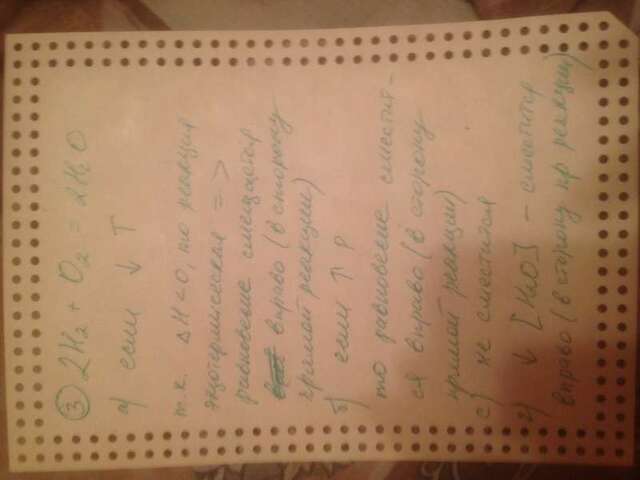 ③ 2H₂ + O₂ = 2H₂O
а) если ↓ T
т.к. ΔH<0, то реакция
экзотермическая =>
равновесие смещается
вправо (в сторону
прямой реакции)
б) если ↑ P
то равновесие сместит-
ся вправо (в сторону
прямой реакции)
с) не сместится
г) ↓ [H₂O] – сместится
вправо (в сторону пр реакции)